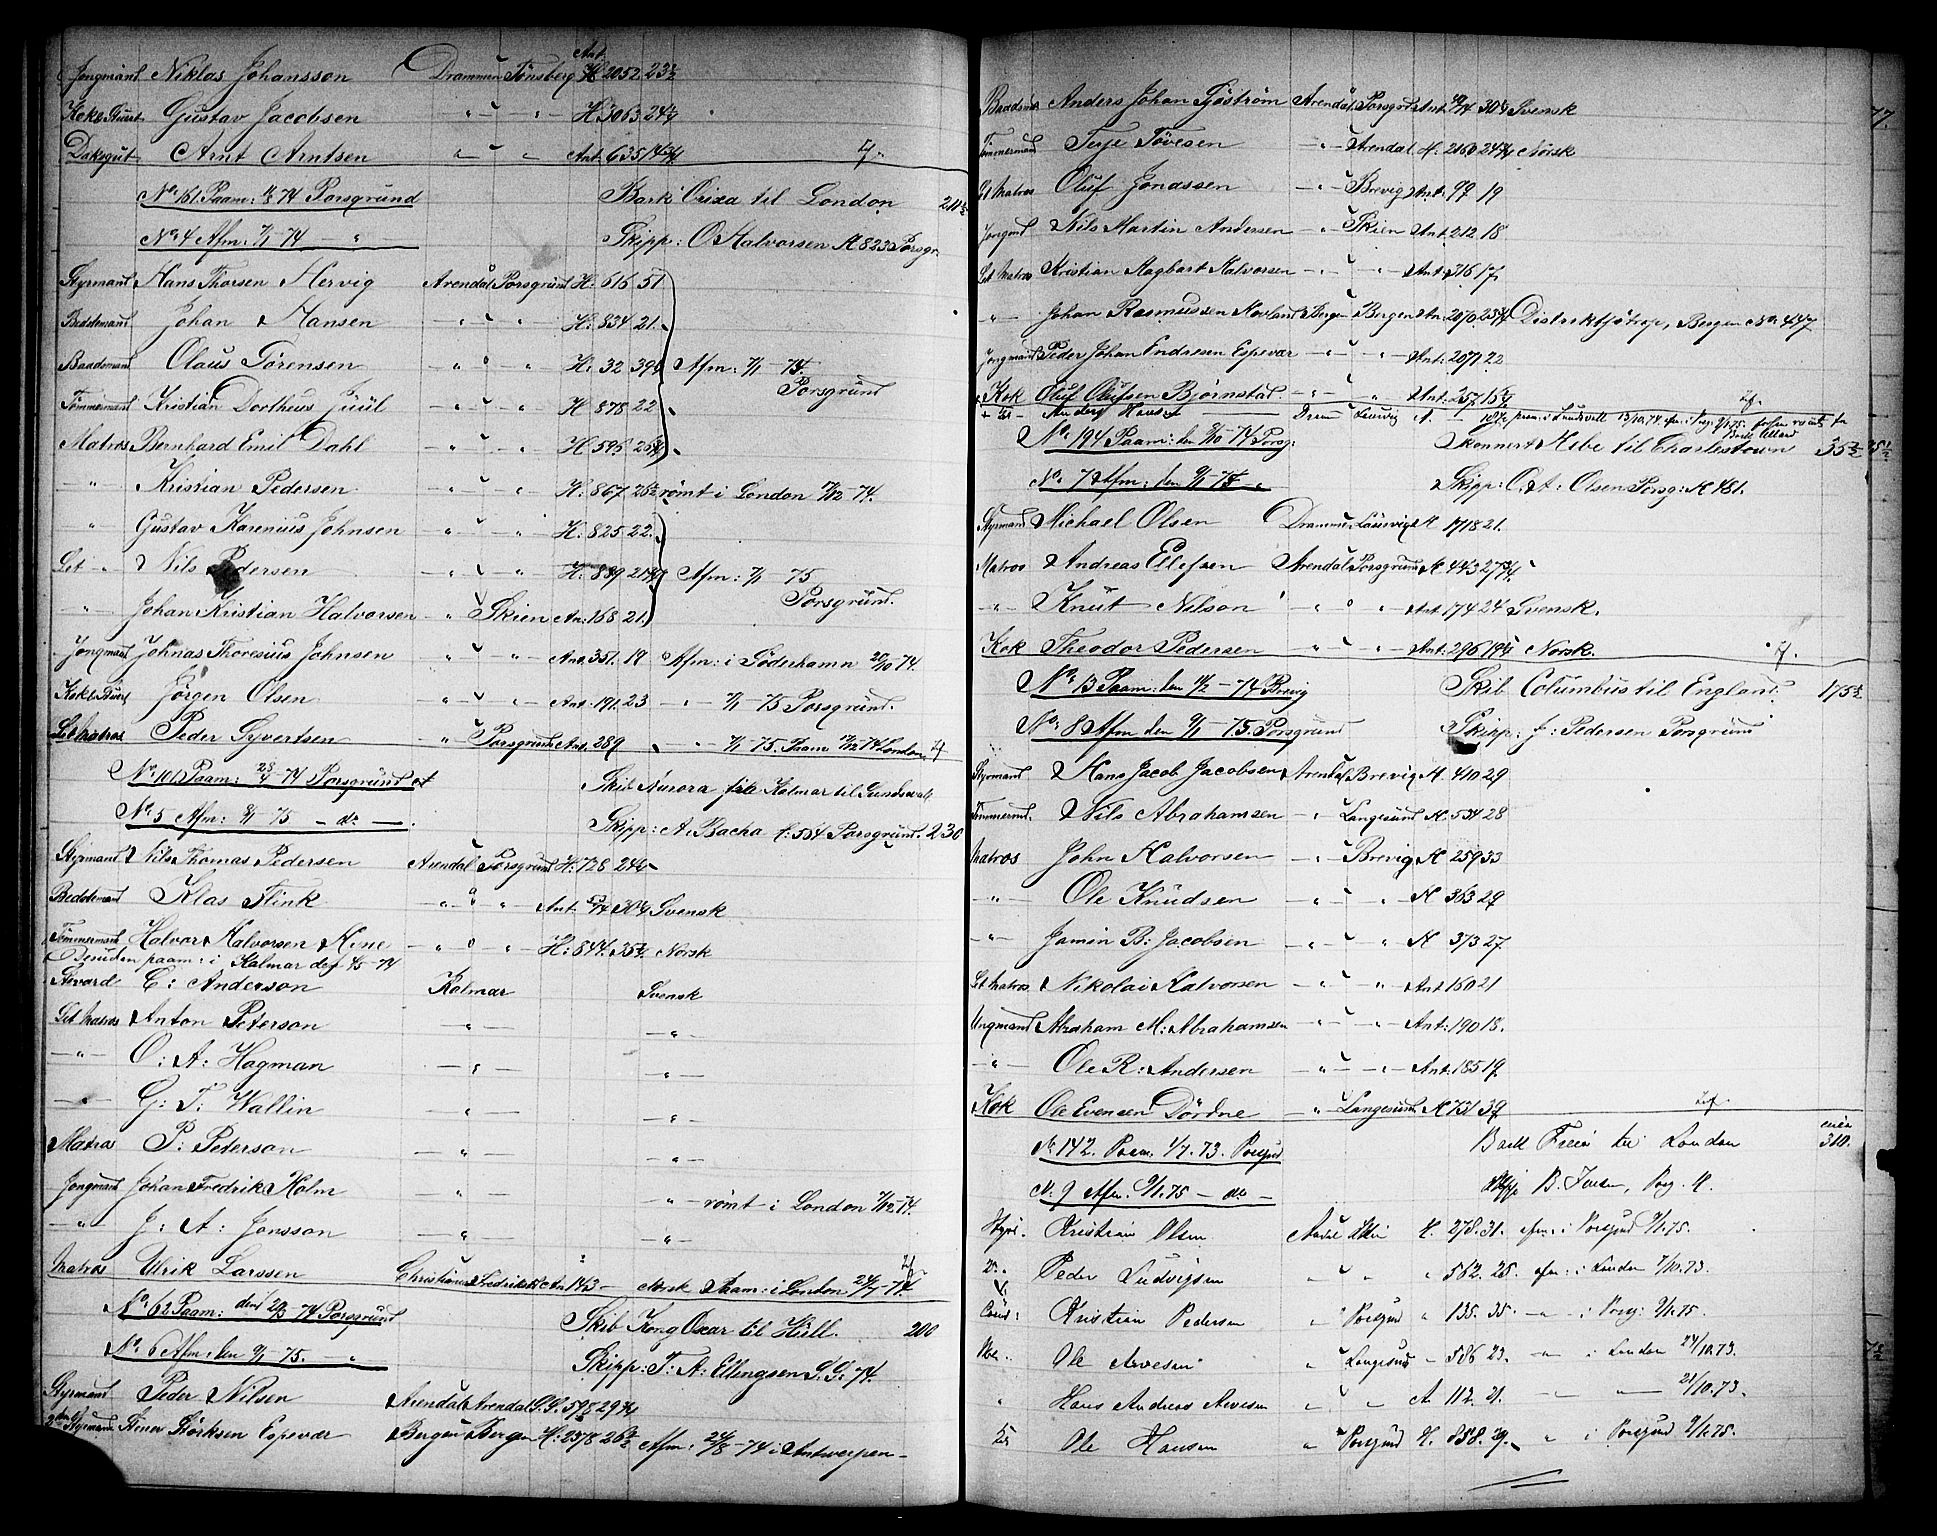 Jongmand Niklas Johansson Drammen Tønsberg Ant. H 2052. 23½
Kok & Stuert Gustav Jacobsen " " " H. 3063. 24¼
Daksgut Arnt Arntsen " " " Ant. 635. 14¾
No 161. Paam: 74 Porsgrund Bark Orixa til London 211½
No 4 Afm. 7/1 - 74 " Skipp: O Halvorsen H 823 Porsgr.
Styrmand Hans Thorsen Hervig Arendal Porsgrund H. 616 51
Bedstemand Johan Hansen " " " H. 834 21.
Baadsmand Olaus Sørensen " " " H. 32 39 Afm: 7/1 - 75. Porsgrund
Tømmermand Kristian Dortheus Juul " " " H 878 22
Matros Bernhard Emil Dahl " " " H 596 25¾
" Kristian Pedersen " " " H. 867. 25½ rømt i London 74.
" Gustav Karenius Johnsen " " " H: 825. 22.
Let " Nils Pedersen " " " H. 889 21¾ Afm: 7/1 75 Porsgrund.
" Johan Kristian Halvorsen " " Skien An: 168. 21.
Jongmand Johnas Thoresius Johnsen " " " Ant. 351. 19 Afm: i Söderhamn 20/10 74.
Kok & Stuert Jørgen Olsen " " " Ant. 191. 23 " 7/1 - 75 Porsgrund.
Let Matros Peder Syvertsen " Porsgrund Ant. 289 " 7/1 - 75. Paam 74 London
No 101. Paam: 23/4 - 74 Porsgrund Skib Aurora fra Kalmar til Sundsvall
No 5 Afm: 8/1 75 - do - Skipp: A. Bacha H: 554 Porsgrund. 230
Styrmand Nils Thomas Pedersen Arendal Porsgrund H: 728 24¼
Bedstemand Klas Flink " " " Ant. 74 30¼ Svensk
Tømmermand Halvor Halvorsen Hine " " " H: 844. 35¾ Norsk
Desuden paam: i Kalmar den 4/5 - 74
Stevard C: Anderson Kalmar Svensk
Let Matros Anton Peterson " "
" O: A: Hagman " "
" G: T: Wallin " "
Matros P: Peterson " "
Jongmand Johan Fredrik Holm " " rømt i London 74
" J: A: Jonsson " "
Matros Ulrik Larssen Christiania Fredrikst. An: 143 - Norsk Paam: i London 24/7 - 74.
No 62 Paam: den 20/3 74 Porsgrund Skib Kong Oscar til Hull. 200
No 6 Afm: den 9/1 75. " Skipp: T: A: Ellingsen S.S. 74.
Styrmand Peder Nilsen Arendal Arendal S.S. 598 29¾
2den Styrmand Stener Størksen Espevær Bergen Bergen H: 2378 26½ Afm: 24/8 - 74 i Antwerpen -
77.
Baadsm. Anders Johan Sjöström Arendal Porsgrund Ant: 74 30¼ Svensk
Tømmermand Terje Tovesen " Arendal H. 2160 24¾ Norsk
Let Matros Oluf Jonassen " Brevig Ant: 99 19
Jongmd Nils Martin Andersen " Skien Ant: 212. 18
Let Matros Kristian Hagbart Halvorsen " " Ant: 316 17
" Johan Rasmussen Hovland Bergen Bergen Ant: 2070 23¾ Distriktstrop. Bergen No 447
Jongmand Peder Johan Endresen Espevær " " Ant: 2071 22
Kok Oluf Olufsen Bjørnstad. " " Ant: 257. 15¼
Anders Hansen Dram Laurvig A. 187. paam. i Sundsvall 13/10.74.
No 194 Paam: den 74 Porsg. Skonnert Hebe til Charlestown 35½
No 7 Afm: den 9/1 75 " Skipp: C. A: Olsen Porsg: H 481.
Styrmand Michael Olsen Drammen Laurvig H 1718 21.
Matros Andreas Ellefsen Arendal Porsgrund H 443 27¾
" Knut Nilson " " " Ant. 174 24 Svensk.
Kok Theodor Pedersen " " " Ant: 296 19¼ Norsk.
No 13 Paam: den 11/2 - 74 Brevig Skib Columbus til England. 175½
No 8 Afm den 9/1 - 75. Porsgrund Skipp: J: Pedersen Porsgrund
Styrmand Hans Jacob Jacobsen Arendal Brevig H. 410 29
Tømmermd. Nils Abrahamsen " Langesund H. 534 28
Matros John Halvorsen " Brevig H 259 33
" Ole Knudsen " " H 363 29
" Jamin B: Jacobsen " " H 373 27.
Let Matros Nikolai Halvorsen " " Ant 160 21
Ungmand Abraham M: Abrahamsen " " Ant: 190 18.
" Ole R: Andersen " " Ant: 185 19.
Kok Ole Evensen Dördne " Langesund H 731 39
No 142. Paam. 1/7. 73. Porsgrund Bark Freia til London circa 310.
No 9 Afm. 9/1. 75 - do - Skipp B. Iversen, Porsg. H.
Styrm. Kristian Olsen Arendal Skien H. 278. 31. afm: i Porsgrund 9/1. 75.
2. Peder Ludvigsen " " " 562. 25. afm: i London 7/10. 73.
Kristian Pedersen " Porsgrund " 135. 35. " i Porsg: 9/1. 75.
Ole Arvesen " Langesund " 586 23. " i London 24/10. 73.
" Hans Andreas Arvesen " " A 112. 21. " " 21/10. 73.
Ole Hansen " Porsgrund H. 858. 29. " i Porsgrund 9/1. 75.